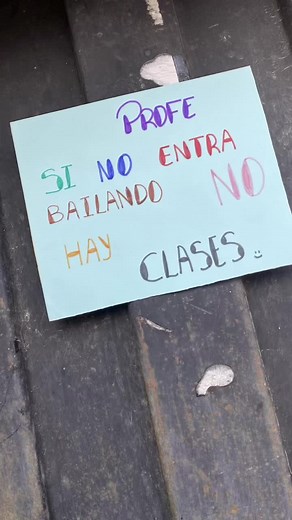 PROFE
SI NO ENTRA
BAILANDO NO
HAY CLASES